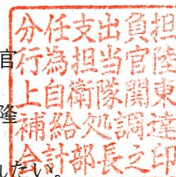 分任支出負担
官
行為担当官陸
上自衛隊関東
隆
補給処調達
会計部長之印
たい。